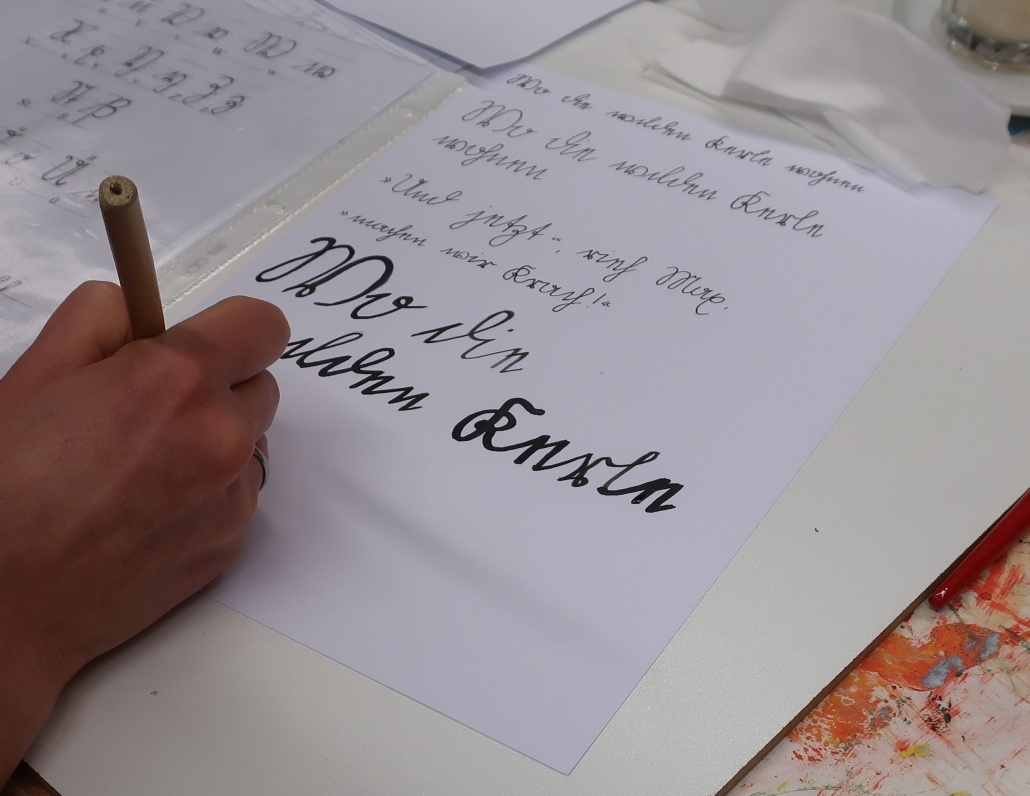 W w
X x, Y y, Z z
ß
Ü
Wo die wilden Kerle wohnen
Wo die wilden Kerle
wohnen
»Und jetzt«, rief Max,
»machen wir Krach!«
Wo die
wilden Kerle